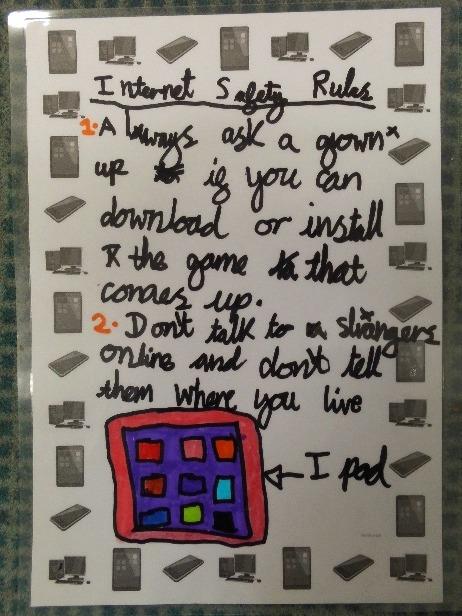 Internet Safety Rules
1. Always ask a grown
up if you can
download or install
the game that
comes up.
2. Don't talk to strangers
online and don't tell
them where you live
I pad